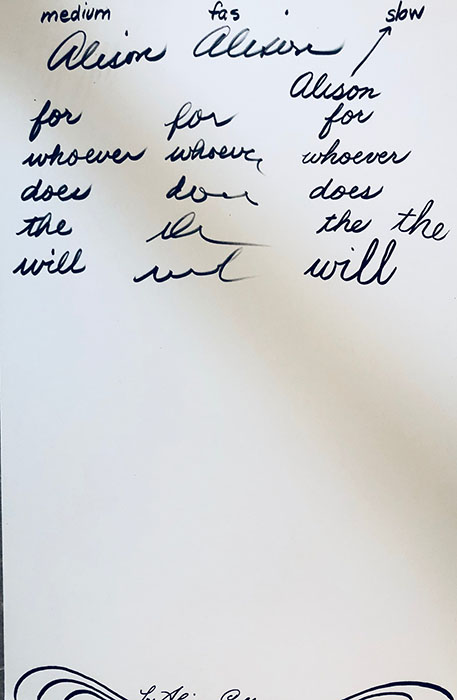 medium fas slow
Alison Alison
Alison
for for for
whoever whoeve whoever
does does
the the the
will will